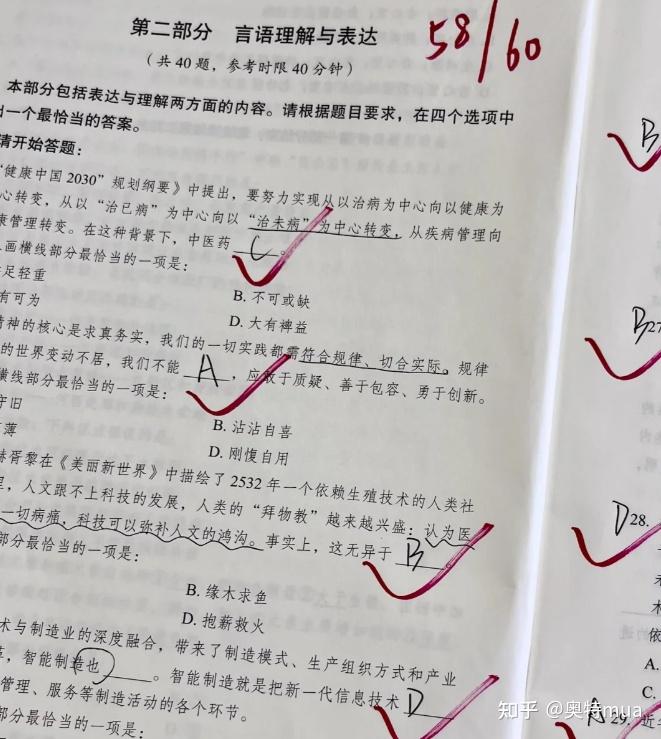 第二部分 言语理解与表达
58/60
(共 40 题，参考时限 40 分钟)
本部分包括表达与理解两方面的内容。请根据题目要求，在四个选项中
一个最恰当的答案。
请开始答题：
“健康中国 2030”规划纲要》中提出，要努力实现从以治病为中心向以健康为
心转变，从以“治已病”为中心向以“治未病”为中心转变，从疾病管理向
康管理转变。在这种背景下，中医药 C 。
画横线部分最恰当的一项是：
足轻重
B. 不可或缺
有可为
D. 大有裨益
精神的核心是求真务实，我们的一切实践都需符合规律、切合实际。规律
的世界变动不居，我们不能 A ，应敢于质疑、善于包容、勇于创新。
横线部分最恰当的一项是：
守旧
B. 沾沾自喜
薄
D. 刚愎自用
赫胥黎在《美丽新世界》中描绘了 2532 年一个依赖生殖技术的人类社
里，人文跟不上科技的发展，人类的“拜物教”越来越兴盛：认为医
一切病痛，科技可以弥补人文的鸿沟。事实上，这无异于 B
部分最恰当的一项是：
B. 缘木求鱼
D. 抱薪救火
术与制造业的深度融合，带来了制造模式、生产组织方式和产业
，智能制造也____。智能制造就是把新一代信息技术 D
管理、服务等制造活动的各个环节。
部分最恰当的一项是：
B
B 27
D 28.
依
A.
C.
A 29. 近
知乎 @奥特mua